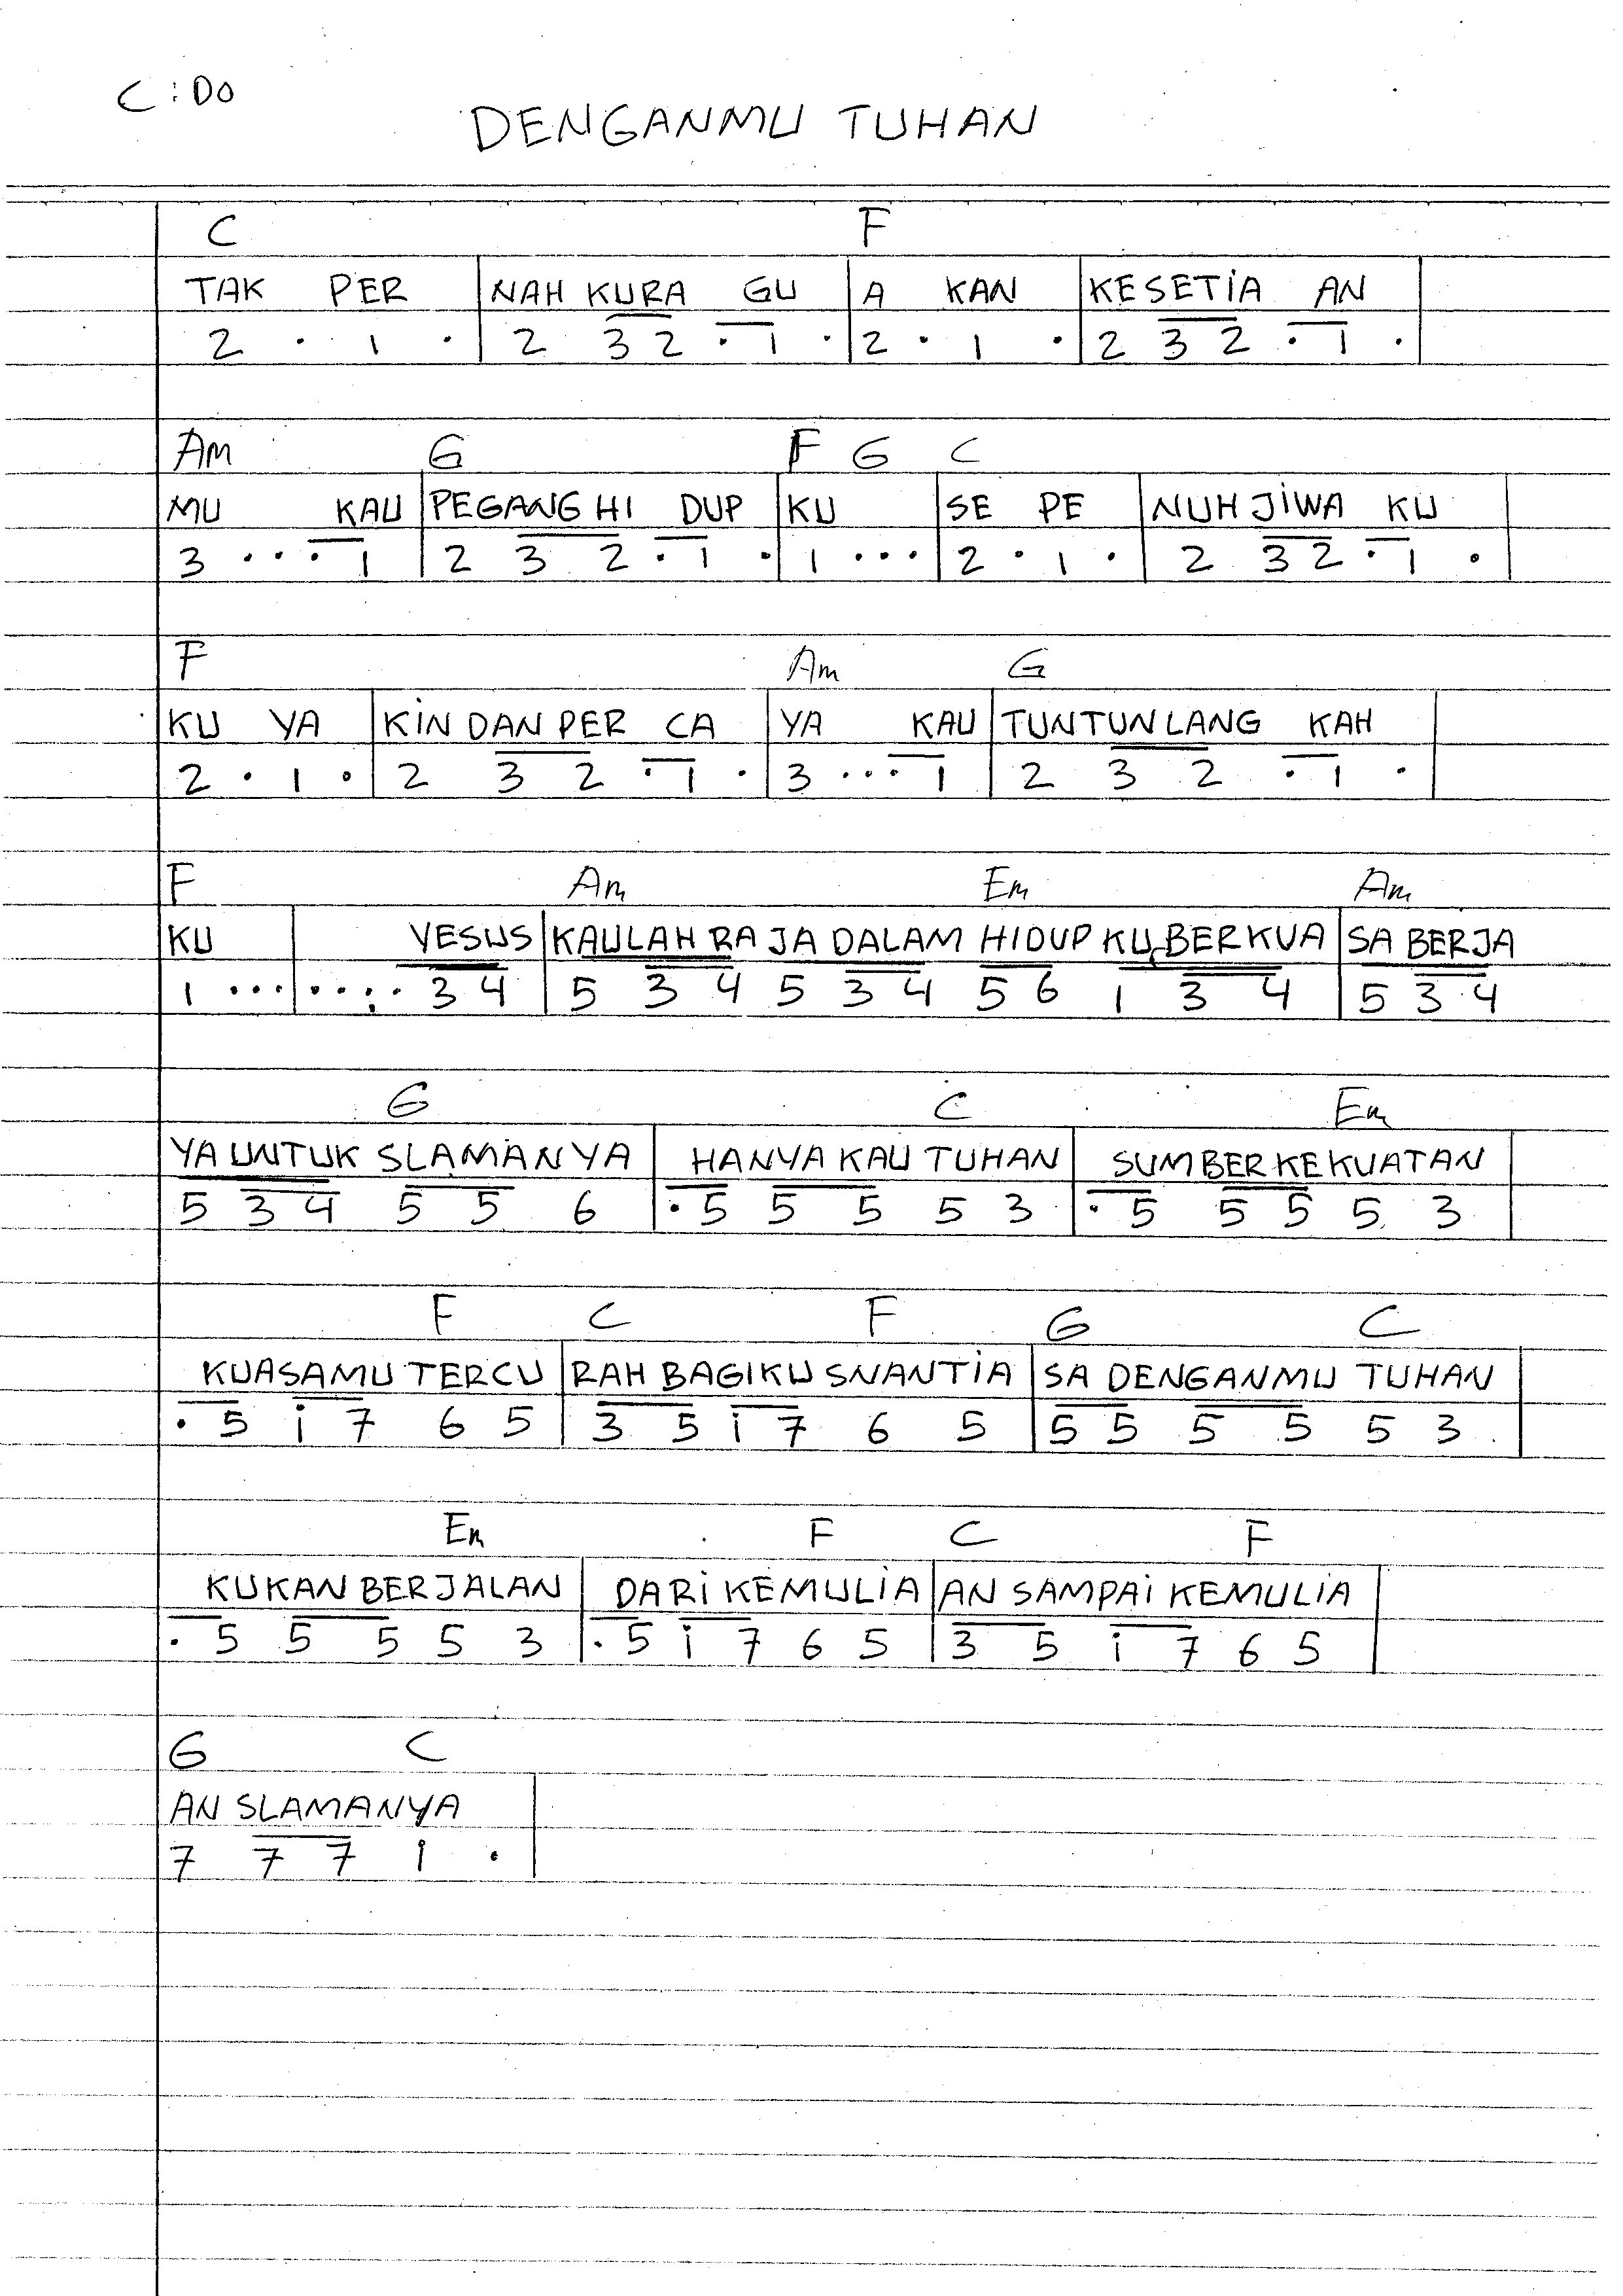 C : DO
DENGANMU TUHAN
C F
TAK PER | NAH KURA GU | A KAN | KESETIA AN |
2 . 1 . | 2 32 . 1 . | 2 . 1 . | 2 32 . 1 . |
Am G F G C
MU KAU | PEGANG HI DUP | KU | SE PE | NUH JIWA KU |
3 . . . 1 | 2 3 2 . 1 . | 1 . . . | 2 . 1 . | 2 32 . 1 . |
F Am G
KU YA | KIN DAN PER CA | YA KAU | TUNTUN LANG KAH |
2 . 1 . | 2 3 2 . 1 . | 3 . . . 1 | 2 3 2 . 1 . |
F Am Em Am
KU | YESUS | KAULAH RA JA DALAM HIDUP KU BERKUA | SA BERJA
1 . . . | . . . . 3 4 | 5 3 4 5 3 4 5 6 1 3 4 | 5 3 4
G C Em
YA UNTUK SLAMANYA | HANYA KAU TUHAN | SUMBER KEKUATAN |
5 3 4 5 5 6 | . 5 5 5 5 3 | . 5 5 5 5 3 |
F C F G C
KUASAMU TERCU | RAH BAGIKU SNANTIA | SA DENGANMU TUHAN |
. 5 i 7 6 5 | 3 5 i 7 6 5 | 5 5 5 5 5 3 |
Em F C F
KUKAN BERJALAN | DARI KEMULIA | AN SAMPAI KEMULIA |
. 5 5 5 5 3 | . 5 i 7 6 5 | 3 5 i 7 6 5 |
G C
AN SLAMANYA |
7 7 7 i . |